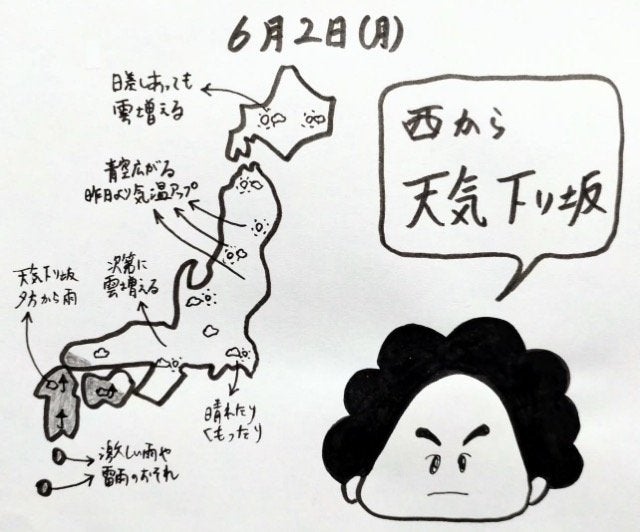 6月2日(月)
日差しあっても
雲増える
青空広がる
昨日より気温アップ
次第に
雲増える
天気下り坂
夕方から雨
晴れたり
くもったり
激しい雨や
雷雨のおそれ
西から
天気下り坂